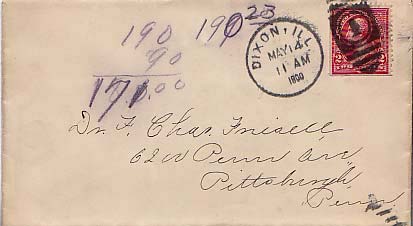 190 190 23
90
171.00
DIXON, ILL.
MAY 14
11 AM
1900
Dr. F. Chas. Frisell
6200 Penn Ave
Pittsburgh
Penn.